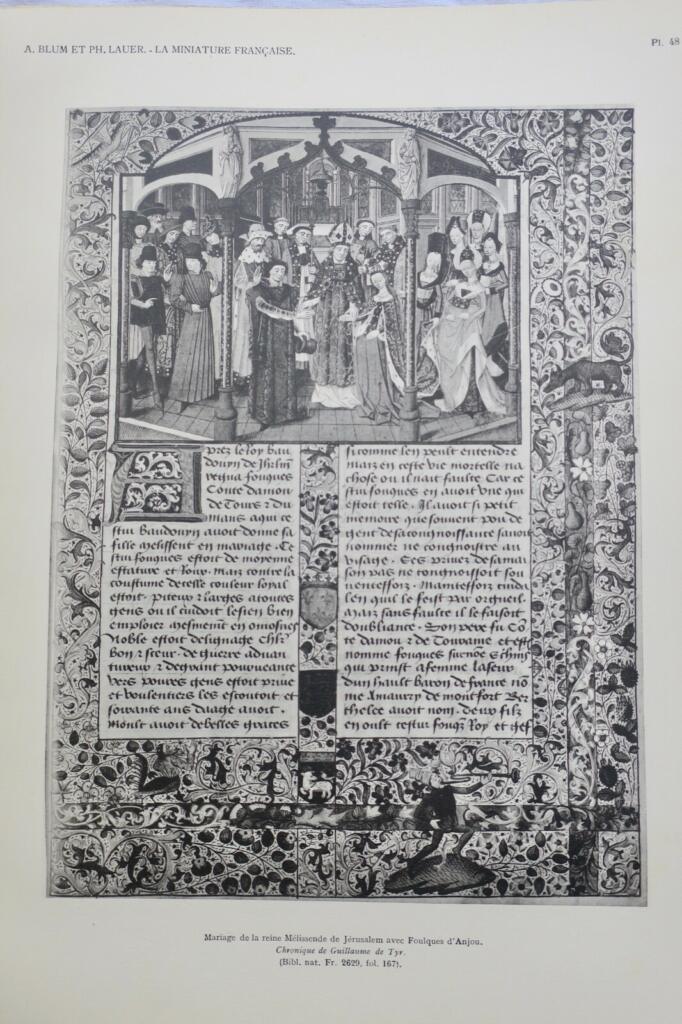 A. BLUM ET PH. LAUER. - LA MINIATURE FRANÇAISE.
Pl. 48
Aprez le Roy Bau
douyn de Jhrlm
regna fouques
Conte damou
de Tours z du
mans aqui ce
stui Baudouyn auoit donne sa
fille melissent en mariage. Ce
stui fouques estoit de moyenne
estature et Rour. Maiz contre la
coustume decelle couleur loyal
estoit. Piteux z larges atoutes
gens ou il cuidoit lesien bien
emploier mesment en omosnes
Noble estoit delignage
Bon z seur. de guerre aduan
tureux z degrant pourueance
vers poures gens estoit priue
et voulentiers les escoutoit et
soixante ans daage auoit.
Moult auoit debelles graces
si comme len peult entendre
Maiz en ceste vie mortelle na
chose ou il nait faulte Car ce
stui fouques en auoit une qui
estoit telle. Il auoit si petit
memoire que souuent pou de
gent desacongnoissance sauoit
nommer ne congnoistre au
visage. Ces priuez desamai
son pas ne congnoissoit sou
uenteffoiz. Mainteffoiz cuidi
len quil le feist par orgueil.
Maiz sans faulte il le faisoit
doubliance. Son pere fu Co
te damou z de Touraine et est
nomme fouques
qui prinst afemme laseur
dun hault baron de france no
me Amaury de montfort Ber
thelee auoit nom. deux filz
en oult cestui fouques Roy et gef
Mariage de la reine Mélissende de Jérusalem avec Foulques d'Anjou.
Chronique de Guillaume de Tyr.
(Bibl. nat. Fr. 2629, fol. 167).